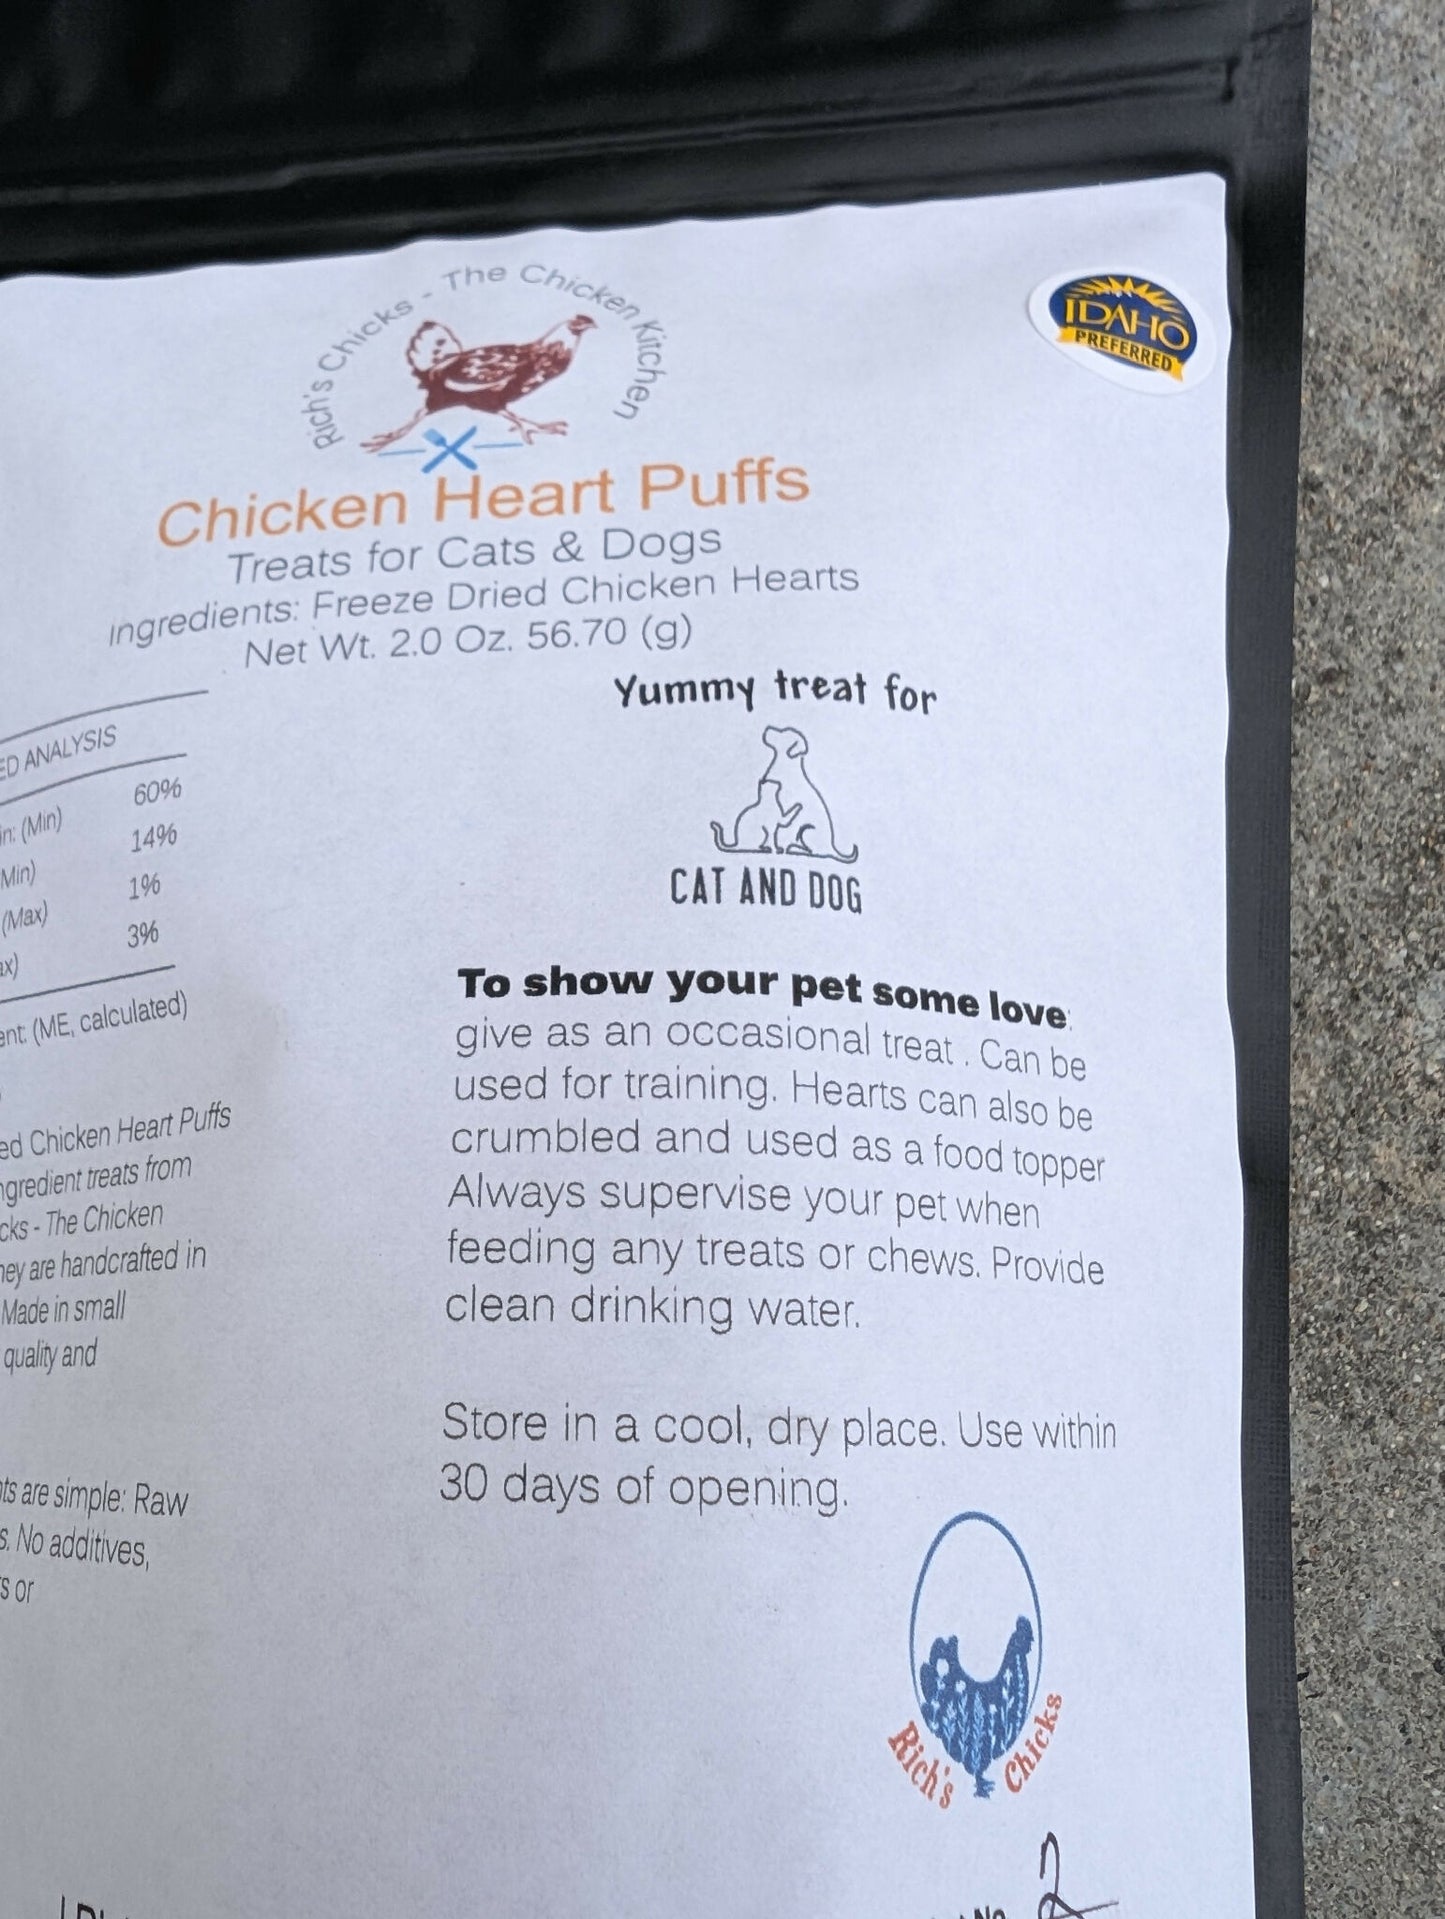 Rich's Chicks - The Chicken Kitchen
IDAHO
PREFERRED
Chicken Heart Puffs
Treats for Cats & Dogs
Ingredients: Freeze Dried Chicken Hearts
Net Wt. 2.0 Oz. 56.70 (g)
ANALYSIS
60%
(Min)
14%
Min)
1%
(Max)
3%
(ME, calculated)
Chicken Heart Puffs
treats from
- The Chicken
are handcrafted in
Made in small
quality and
are simple: Raw
No additives,
or
Yummy treat for
CAT AND DOG
To show your pet some love:
give as an occasional treat . Can be
used for training. Hearts can also be
crumbled and used as a food topper
Always supervise your pet when
feeding any treats or chews. Provide
clean drinking water.
Store in a cool, dry place. Use within
30 days of opening.
Rich's Chicks
No
2